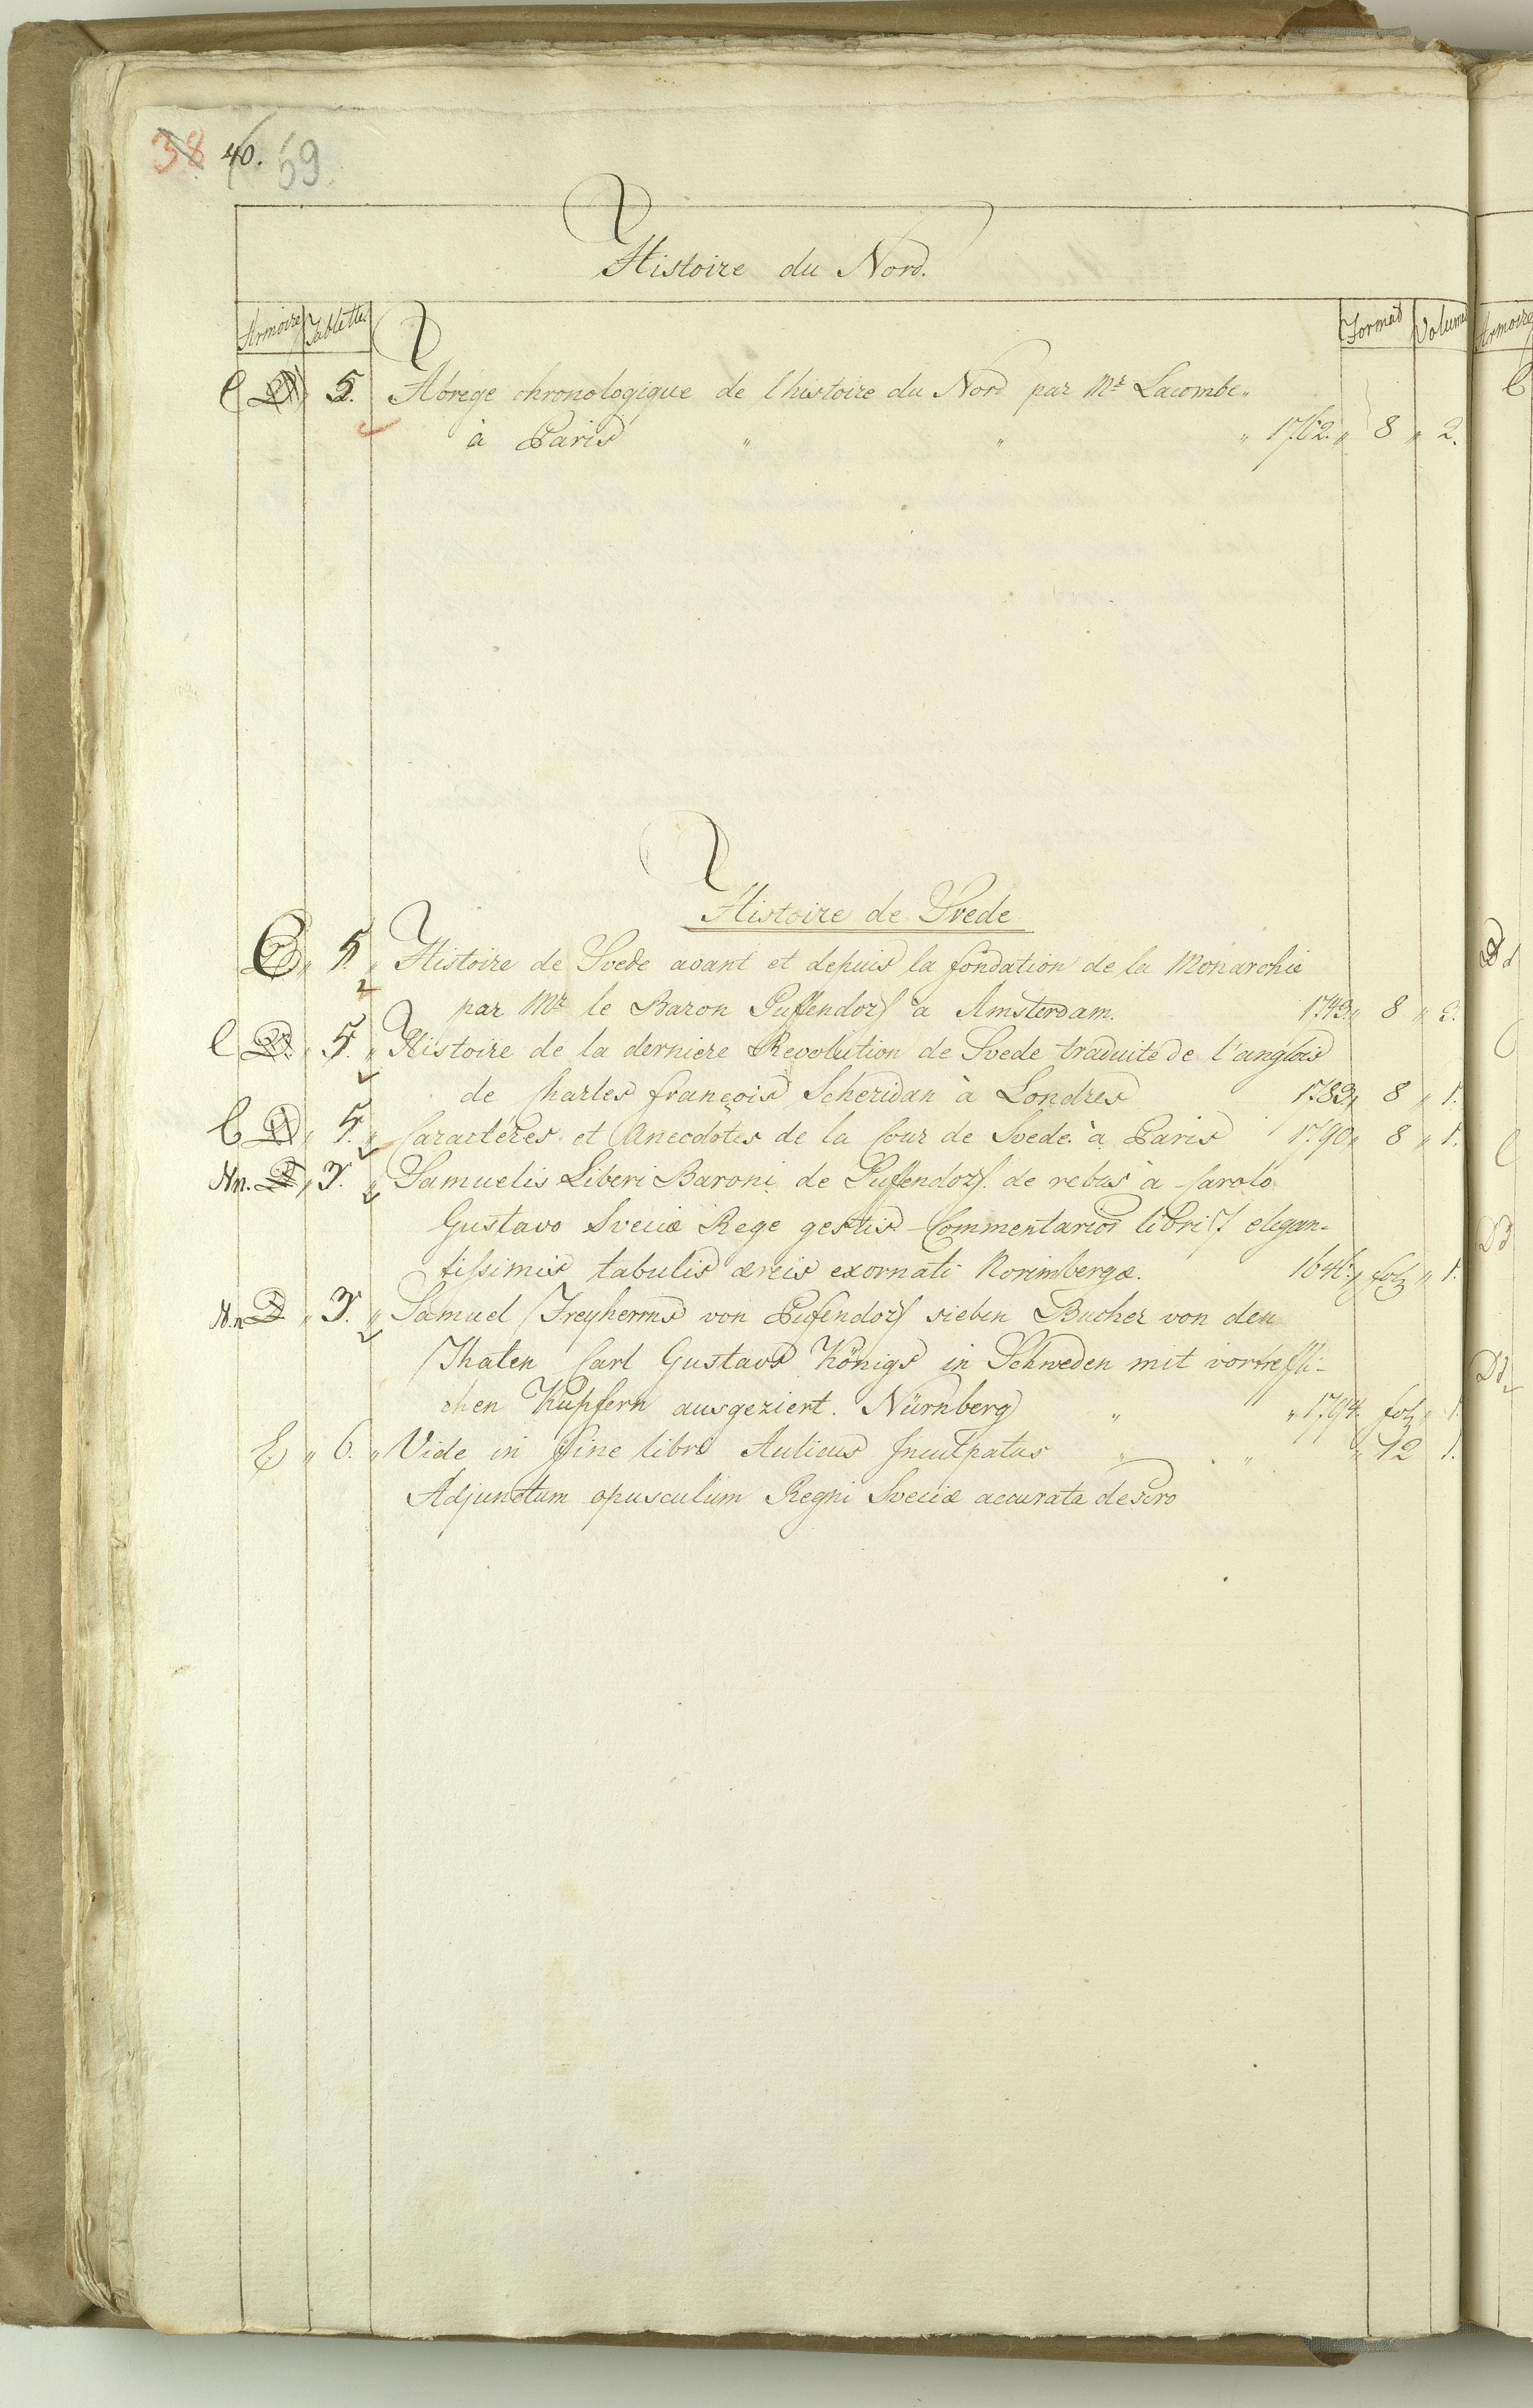 38 40. 59.
Histoire du Nord.
Armoire Tablettes Format Volume
C D 5. Abrege chronologique de l'histoire du Nord par Mr Lacombe „
à Paris „ „ „ 1762. „ 8 „ 2.
Histoire de Svede
C „ 5. „ Histoire de Svede avant et depuis la fondation de la Monarchie
par Mr le Baron Puffendorf a Amsterdam. 1743 „ 8 „ 3.
C D. „ 5. „ Histoire de la derniere Revolution de Svede traduite de l'anglois
de Charles françois Scheridan à Londres 1783 „ 8 „ 1.
C D „ 5. „ Caracteres et Anecdotes de la Cour de Svede à Paris 1790 „ 8 „ 1.
Nn. D „ 3. „ Samuelis Liberi Baroni de Puffendorf. de rebus à Carolo
Gustavo Sveciæ Rege gestis Commentarios libri 7 elegan-
tissimis tabulis æreis exornati Norimbergæ. „ fol „ 1.
N.n D „ 3. „ Samuel Freyherrns von Pufendorf sieben Bucher von den
Thaten Carl Gustavs Königs in Schweden mit vortreffli-
chen Kupfern ausgeziert. Nürnberg „ „ 1794. fol „ 1.
E. „ 6. „ Vide in fine libri Aulicus Inculpatus „ „ „ 12 1.
Adjunctum opusculum Regni Sveciæ accurata descro